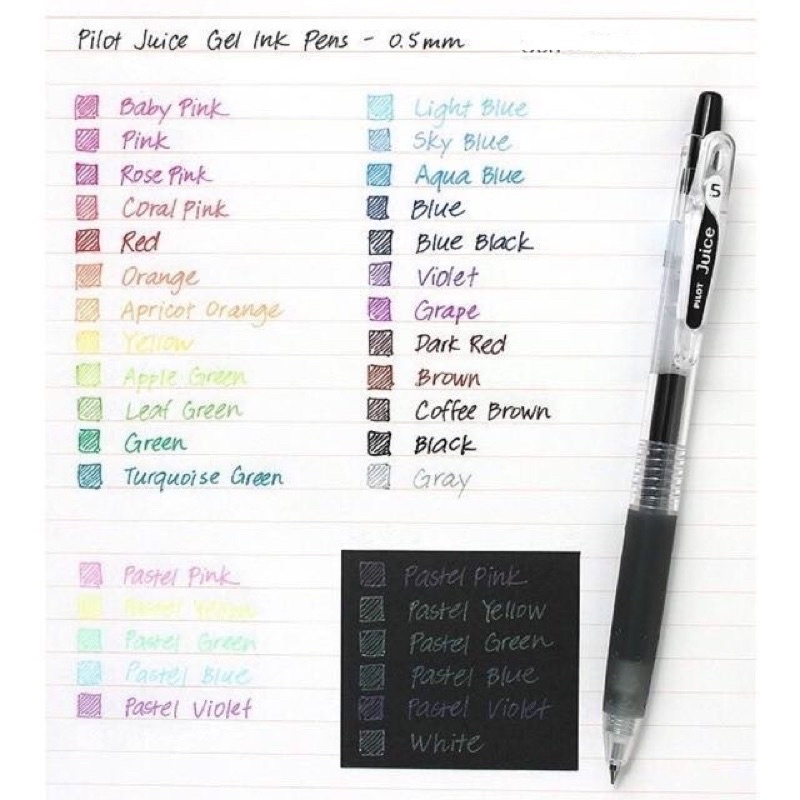 Pilot Juice Gel Ink Pens - 0.5mm
Baby Pink
Pink
Rose Pink
Coral Pink
Red
Orange
Apricot Orange
Yellow
Apple Green
Leaf Green
Green
Turquoise Green
Light Blue
Sky Blue
Aqua Blue
Blue
Blue Black
Violet
Grape
Dark Red
Brown
Coffee Brown
Black
Gray
Pastel Pink
Pastel Yellow
Pastel Green
Pastel Blue
Pastel Violet
Pastel Pink
Pastel Yellow
Pastel Green
Pastel Blue
Pastel Violet
White
.5
PILOT Juice